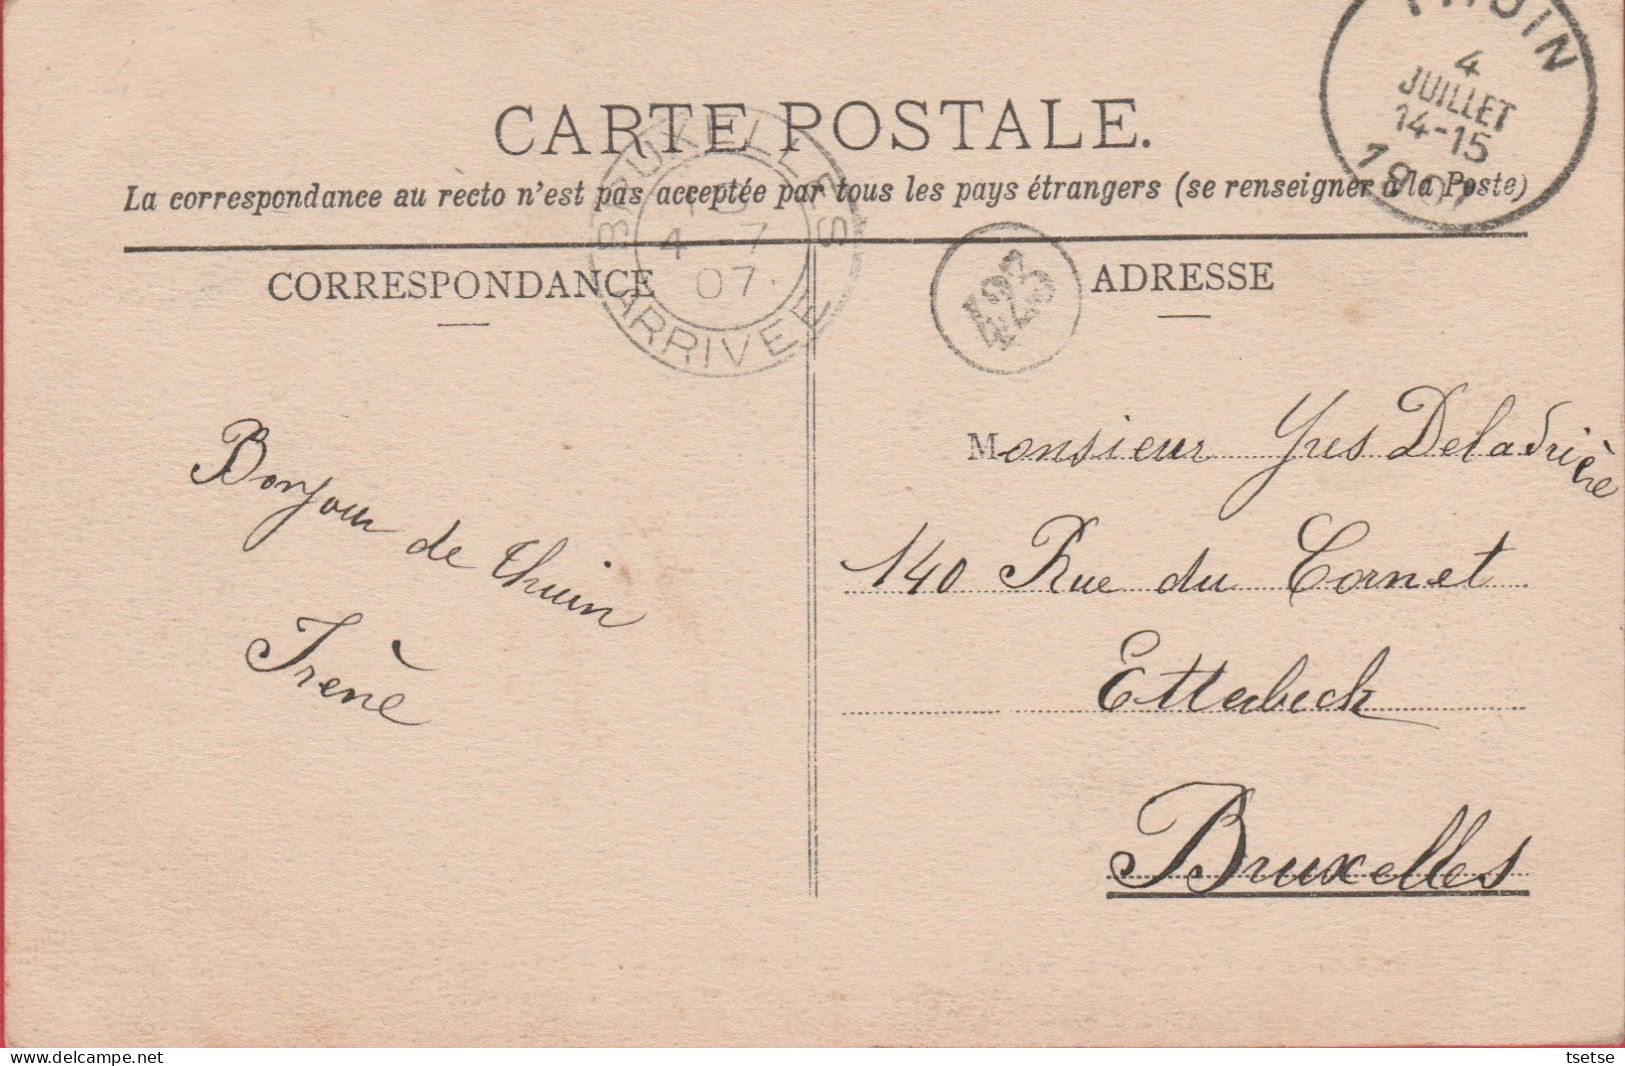 CARTE POSTALE.
La correspondance au recto n'est pas acceptée par tous les pays étrangers (se renseigner à la Poste)
THUIN
4
JUILLET
14-15
1907
BRUXELLES
4 -7
07.
ARRIVEE
423
CORRESPONDANCE
Bonjour de thuin
Irène
ADRESSE
Monsieur Yves Deladrière
140 Rue du Cornet
Etterbeck
Bruxelles
www.delcampe.net
tsetse